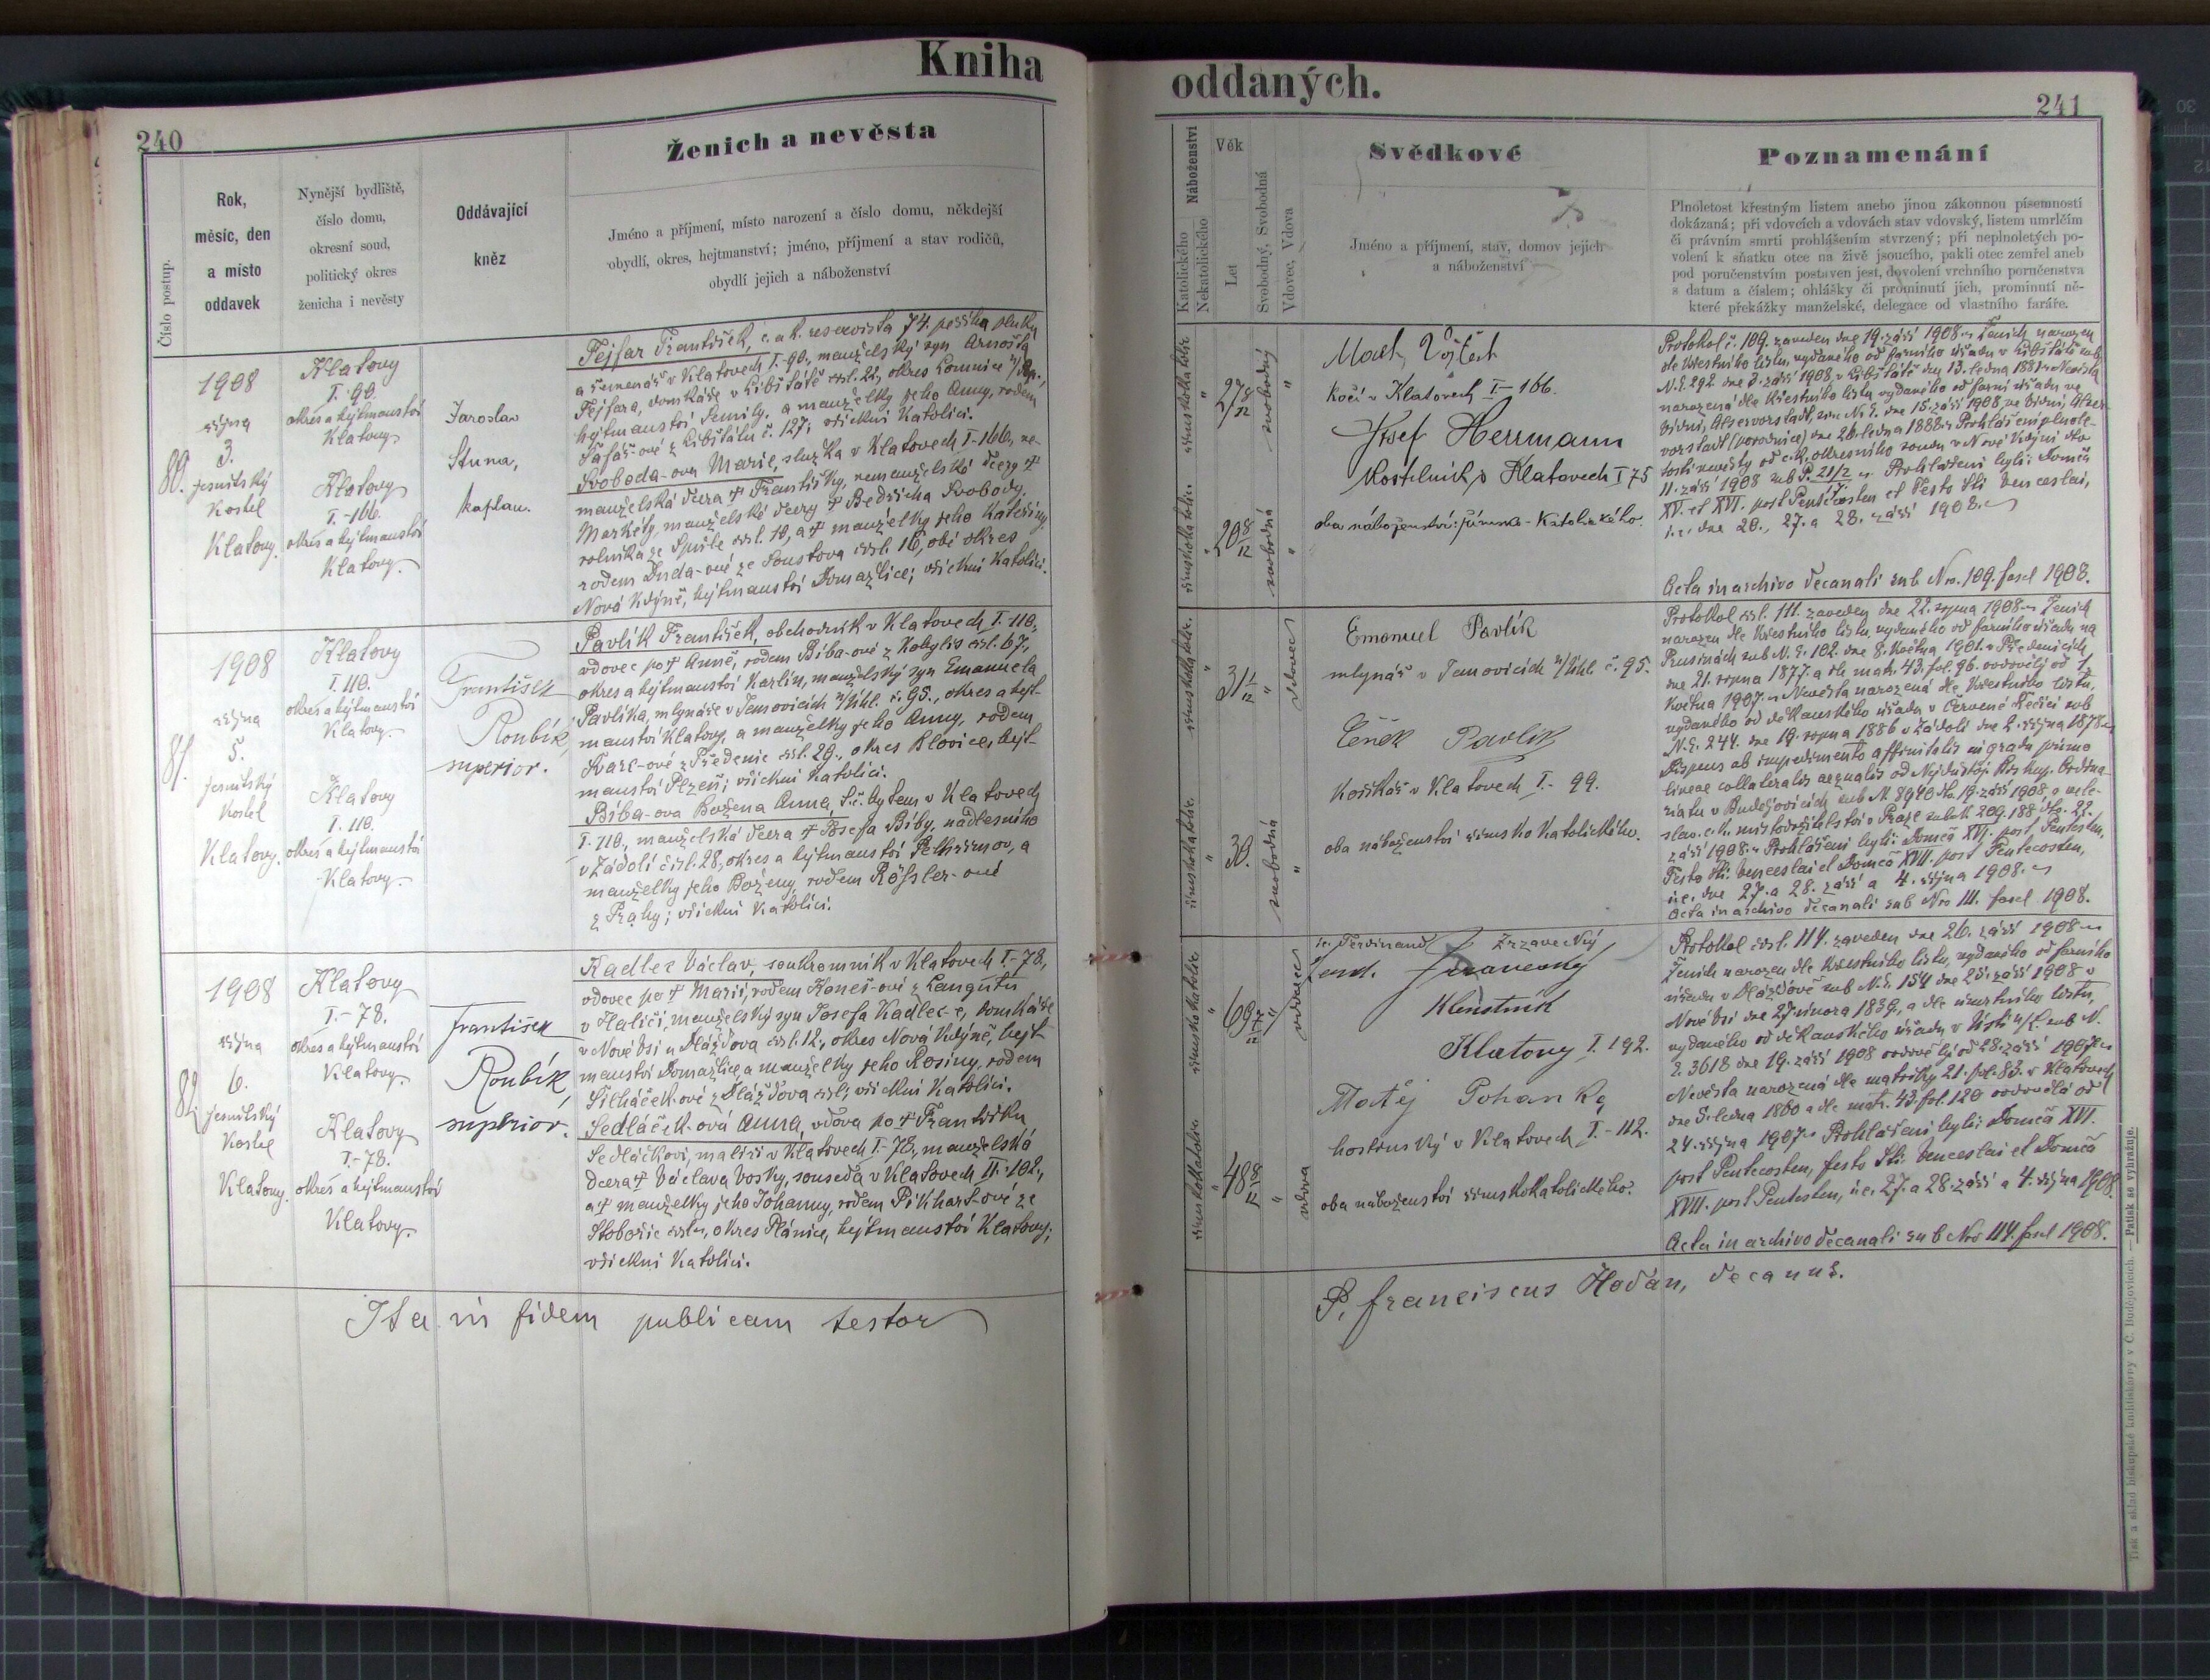 Kniha
240
Číslo postup.
Rok,
měsíc, den
a místo
oddavek
Nynější bydliště,
číslo domu,
okresní soud,
politický okres
ženicha i nevěsty
Oddávající
kněz
Ženich a nevěsta
Jméno a příjmení, místo narození a číslo domu, někdejší
obydlí, okres, hejtmanství; jméno, příjmení a stav rodičů,
obydlí jejich a náboženství
80.
1908
října
3.
jesuitský
kostel
Klatovy.
Klatovy
I. 90.
okres a hejtmanství
Klatovy
Klatovy
I.-166.
okres a hejtmanství
Klatovy.
Jaroslav
Stuna,
kaplan.
Fejfar František, c. a k. reservista 74. pěšího pluku
a řemenář v Klatovech I.-90., manželský syn Arnošta
Fejfara, domkáře v Libštátě čísl. 22, okres Lomnice n/Pop.,
hejtmanství Semily, a manželky jeho Anny, rodem
z Libštátu č. 127; všickni katolíci.
Svoboda-ova Marie, služka v Klatovech I-166, ne-
manželská dcera † Františky, nemanželské dcery †
Markéty, manželské dcery † Bedřicha Svobody,
rolníka ze Spule čísl. 10, a † manželky jeho Kateřiny,
rodem Duda-ové ze Loustova čísl. 16, obé okres
Nová Kdýně, hejtmanství Domažlice; všickni katolíci.
81.
1908
října
5.
jesuitský
kostel
Klatovy.
Klatovy
I. 110.
okres a hejtmanství
Klatovy.
Klatovy
I. 110.
okres a hejtmanství
Klatovy.
František
Roubík,
superior.
Pavlík František, obchodník v Klatovech I. 110,
vdovec po † Anně, rodem Bíba-ové z Kobylis čsl. 67,
okres a hejtmanství Karlín, manželský syn Emanuela
Pavlíka, mlynáře v Temovicích n/Úhl. č. 95., okres a hejt-
manství Klatovy, a manželky jeho Anny, rodem
Švarc-ové z Předenic čsl. 29., okres Blovice, hejt-
manství Plzeň; všickni katolíci.
Bíba-ova Božena Anna, t. č. bytem v Klatovech
I-110., manželská dcera † Josefa Bíby, nadlesního
v Zádolí čísl. 28, okres a hejtmanství Pelhřimov, a
manželky jeho Boženy, rodem Rössler-ové
z Prahy; všickni katolíci.
82.
1908
října
6.
jesuitský
kostel
Klatovy.
Klatovy
I.-78.
okres a hejtmanství
Klatovy.
Klatovy
I.-78.
okres a hejtmanství
Klatovy.
František
Roubík,
superior.
Kadlec Václav, soukromník v Klatovech I-78,
vdovec po † Marii, rodem Haneš-ové z Langutu
v Haliči, manželský syn Josefa Kadlec-e, domkáře
v Nové Vsi u Dlážďova čsl. 12., okres Nová Kdýně, hejt-
manství Domažlice, a manželky jeho Rosiny, rodem
z Dlážďova čsl; všickni katolíci.
Sedláček-ová Anna, vdova po † Františku
Sedláčkovi, malíři v Klatovech I-78, manželská
dcera † Václava Vosky, souseda v Klatovech II. 102.,
a † manželky jeho Johanny, rodem Pikhart-ové ze
Stobořic čsl, okres Plánice, hejtmanství Klatovy;
všickni katolíci.
Ita in fidem publicam testor
oddaných.
241
Náboženství
Katolického
Nekatolického
Věk
Let
Svobodný, Svobodná
Vdovec, Vdova
Svědkové
Jméno a příjmení, stav, domov jejich
a náboženství
Poznamenání
Plnoletost křestným listem anebo jinou zákonnou písemností
dokázaná; při vdovcích a vdovách stav vdovský, listem umrlčím
či právním smrti prohlášením stvrzený; při neplnoletých po-
volení k sňatku otce na živě jsoucího, pakli otec zemřel aneb
pod poručenstvím postaven jest, dovolení vrchního poručenstva
s datum a číslem; ohlášky či prominutí jich, prominutí ně-
které překážky manželské, delegace od vlastního faráře.
římskokatolic.
27 8/12
svobodný
římskokatolic.
20 8/12
svobodná
Vojtěch
kočí v Klatovech I-166.
Josef Herrmann
Kostelník v Klatovech I 75
oba náboženství: římsko-katolického.
Protokol č. 109. zaveden dne 19. září 1908. Ženich narozen
dle křestního listu, vydaného od farního úřadu v Libštátě sub
N. E. 292. dne 3. září 1908, v Libštátě dne 13. ledna 1881. Nevěsta
narozená dle křestního listu vydaného od farní úřadu ve
Vídni, Alservorstadt, sub N. E. dne 15. září 1908, ve Vídni, Alser-
vorstadt (porodnice) dne 26. ledna 1888. Prohlášení plnole-
tosti nevěsty od c. k. okresního soudu v Nové Kdýni dto
11. září 1908 sub P. 21/2. Prohlášeni byli: Domča
XV. et XVI. post Pentecosten et Festo Sti Venceslai,
i. e. dne 20., 27. a 28. září 1908.
Acta in archivo decanali sub Nro. 109. fasc 1908.
římskokatolic.
31 1/12
vdovec
římskokatolic.
30.
svobodná
Emanuel Pavlík
mlynář v Temovicích n/Úhl. č. 95.
Čeněk Pavlík
Košíkář v Klatovech I.- 99.
oba náboženství římskokatolického.
Protokol čsl. 111. zaveden dne 22. srpna 1908. Ženich
narozen dle křestního listu, vydaného od farního úřadu na
Prusinách sub N. E. 102. dne 8. května 1901. v Předenicích
dne 21. srpna 1877. a dle matr. 43. fol. 96. ovdovělý od 1.
května 1907. Nevěsta narozená dle křestního listu,
vydaného od děkanského úřadu v Červené Řečici sub
N. E. 244. dne 19. srpna 1886 v Zádolí dne 2. října 1878.
Dispens ab impedimento affinitatis in gradu primo
lineae collateralis aequalis od Nejdůstoj. Biskup. Ordina-
riatu v Budějovicích sub N. 8940 dto. 19. září 1908 a vele-
slav. c. k. místodržitelství v Praze sub N. 209.188 dto. 22.
září 1908. Prohlášeni byli: Domča XVI. post Pentecosten,
Festo Sti: Venceslai et Domča XVII. post Pentecosten,
i. e. dne 27. a 28. září a 4. října 1908.
Acta in archivo decanali sub Nro 111. fasc 1908.
římskokatolic.
69
vdovec
římskokatolic.
48 8/12
vdova
Ferdinand Zrzavecký
Ferd. Zrzavecký
Klenotník
Klatovy I. 192.
Matěj Pohanka,
hostinský v Klatovech I-112.
oba náboženství římskokatolického.
Protokol čsl. 114. zaveden dne 26. září 1908.
Ženich narozen dle křestního listu, vydaného od farního
úřadu v Dlážďově sub N. E. 154 dne 25. září 1908 v
Nové Vsi dne 27. února 1839., a dle úmrtního listu,
vydaného od děkanského úřadu v Ústí n/L. sub N.
E. 3618 dne 19. září 1908 ovdovělý od 28. září 1907.
Nevěsta narozená dle matriky 21. fol. 83. v Klatovech
dne 5. ledna 1860 a dle matr. 43. fol. 120 ovdovělá od
24. října 1907. Prohlášeni byli: Domča XVI.
post Pentecosten, festo Sti: Venceslai et Domča
XVII. post Pentecosten, i. e. 27. a 28. září a 4. října 1908.
Acta in archivo decanali sub Nro 114. fasc 1908.
P. Franciscus Hodan, decanus.
Tisk a sklad biskupské knihtiskárny v Č. Budějovicích. — Patisk se vyhražuje.